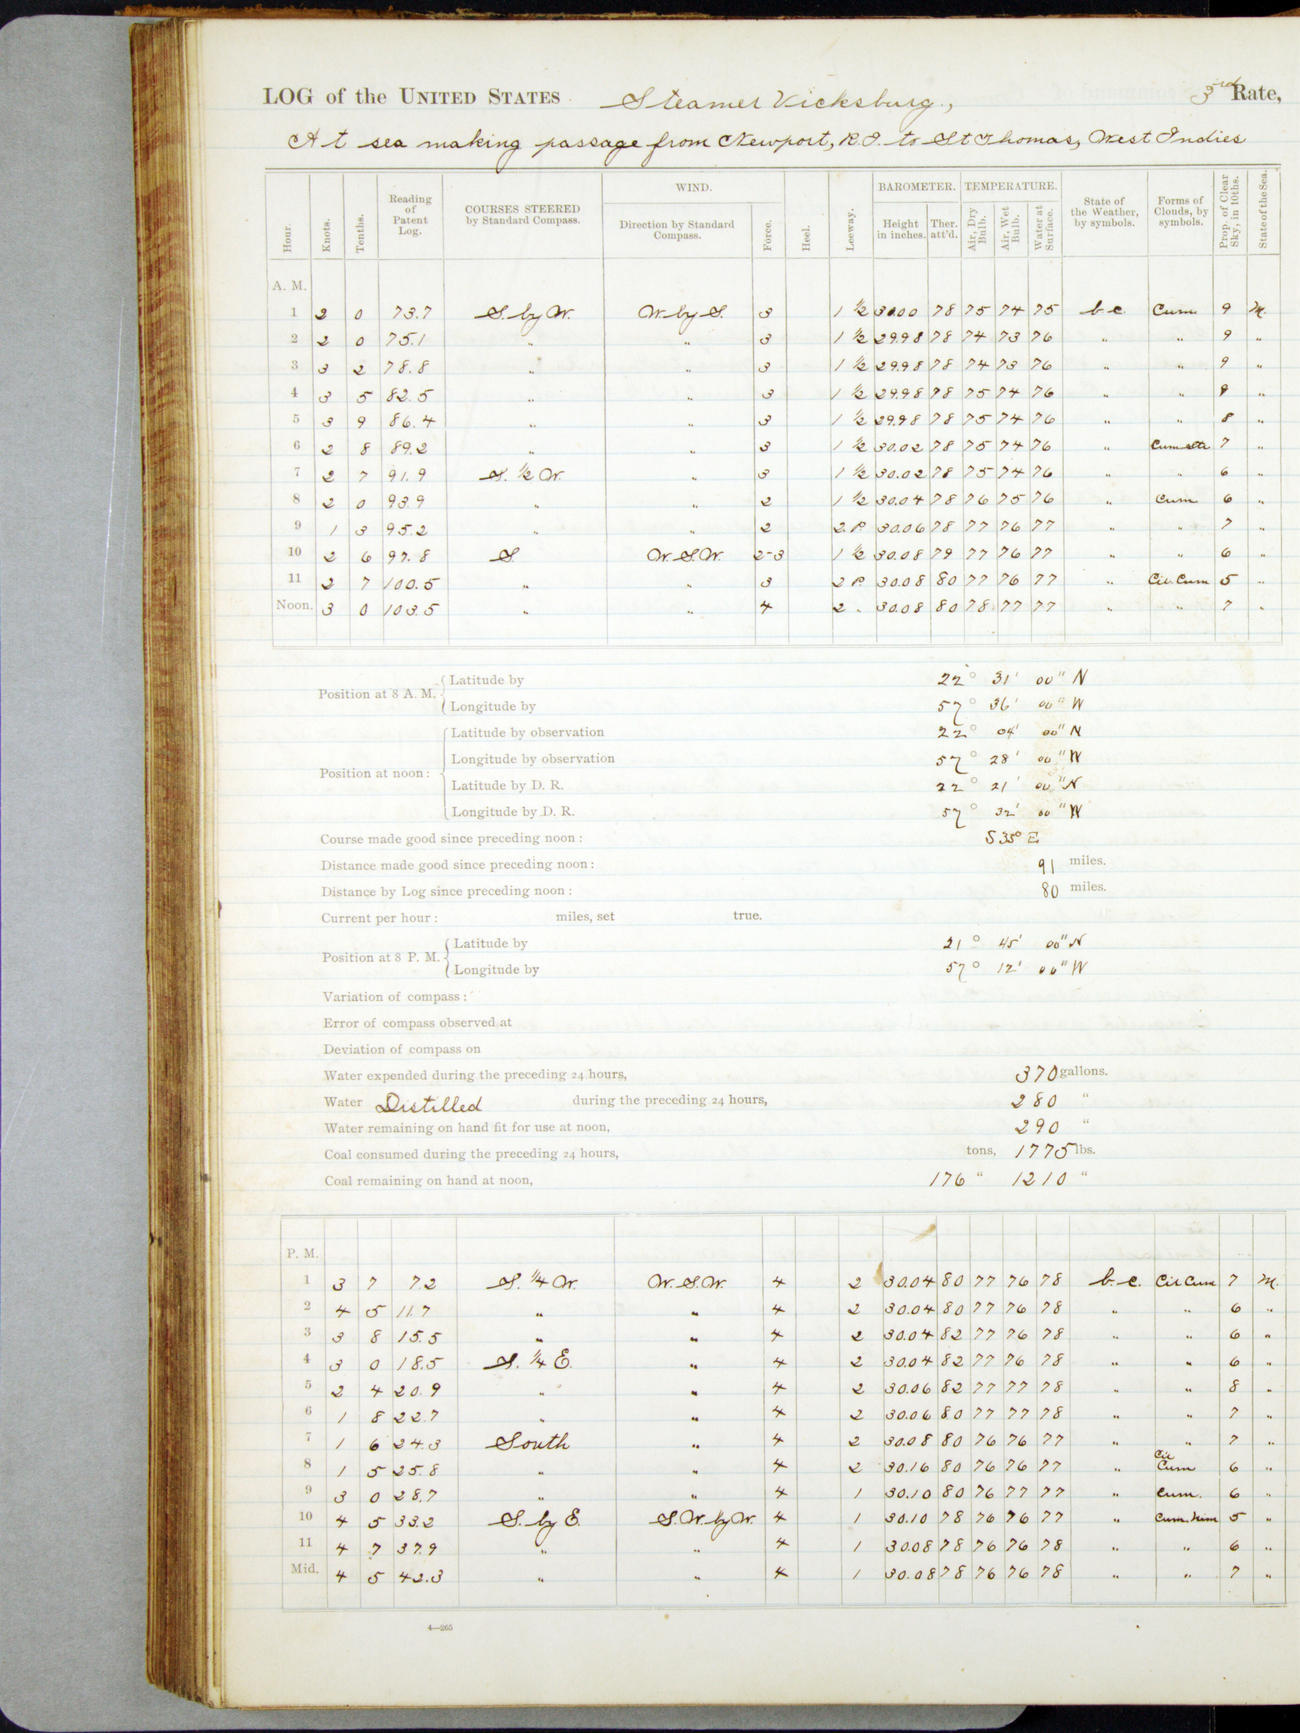 LOG of the UNITED STATES Steamer Vicksburg., 3rd Rate,
At sea making passage from Newport, R.I. to St Thomas, West Indies
Hour. Knots. Tenths. Reading of Patent Log. COURSES STEERED by Standard Compass. WIND. Direction by Standard Compass. Force. Heel. Leeway. BAROMETER. Height in inches. Ther. att'd. TEMPERATURE. Air, Dry Bulb. Air, Wet Bulb. Water at Surface. State of the Weather, by symbols. Forms of Clouds, by symbols. Prop. of Clear Sky, in 10ths. State of the Sea.
A. M.
1 2 0 73.7 S. by W. W. by S. 3 1 ½ 30.00 78 75 74 75 b.c. Cum. 9 M.
2 2 0 75.1 " " 3 1 ½ 29.98 78 74 73 76 " " 9 "
3 3 2 78.8 " " 3 1 ½ 29.98 78 74 73 76 " " 9 "
4 3 5 82.5 " " 3 1 ½ 29.98 78 75 74 76 " " 9 "
5 3 9 86.4 " " 3 1 ½ 29.98 78 75 74 76 " " 8 "
6 2 8 89.2 " " 3 1 ½ 30.02 78 75 74 76 " Cum 7 "
7 2 7 91.9 S. ½ W. " 3 1 ½ 30.02 78 75 74 76 " " 6 "
8 2 0 93.9 " " 2 1 ½ 30.04 78 76 75 76 " Cum 6 "
9 1 3 95.2 " " 2 2 P. 30.06 78 77 76 77 " " 7 "
10 2 6 97.8 S. W.S.W. 2-3 1 ½ 30.08 79 77 76 77 " " 6 "
11 2 7 100.5 " " 3 2 P. 30.08 80 77 76 77 " Cir. Cum 5 "
Noon. 3 0 103.5 " " 4 2 " 30.08 80 78 77 77 " " 7 "
Position at 8 A. M. Latitude by 22° 31' 00" N
Longitude by 57° 36' 00" W
Position at noon: Latitude by observation 22° 04' 00" N
Longitude by observation 57° 28' 00" W
Latitude by D. R. 22° 21' 00" N
Longitude by D. R. 57° 32' 00" W
Course made good since preceding noon: S 35° E
Distance made good since preceding noon: 91 miles.
Distance by Log since preceding noon: 80 miles.
Current per hour: miles, set true.
Position at 8 P. M. Latitude by 21° 45' 00" N
Longitude by 57° 12' 00" W
Variation of compass:
Error of compass observed at
Deviation of compass on
Water expended during the preceding 24 hours, 370 gallons.
Water Distilled during the preceding 24 hours, 280 "
Water remaining on hand fit for use at noon, 290 "
Coal consumed during the preceding 24 hours, tons, 1775 lbs.
Coal remaining on hand at noon, 176 " 1210 "
P. M.
1 3 7 7.2 S. ¼ W. W.S.W. 4 2 30.04 80 77 76 78 b.c. Cir Cum 7 M.
2 4 5 11.7 " " 4 2 30.04 80 77 76 78 " " 6 "
3 3 8 15.5 " " 4 2 30.04 82 77 76 78 " " 6 "
4 3 0 18.5 S. ¼ E. " 4 2 30.04 82 77 76 78 " " 6 "
5 2 4 20.9 " " 4 2 30.06 82 77 77 78 " " 8 "
6 1 8 22.7 " " 4 2 30.06 80 77 77 78 " " 7 "
7 1 6 24.3 South " 4 2 30.08 80 76 76 77 " " 7 "
8 1 5 25.8 " " 4 2 30.16 80 76 76 77 " Cir Cum 6 "
9 3 0 28.7 " " 4 1 30.10 80 76 77 77 " Cum. 6 "
10 4 5 33.2 S. by E. S.W. by W. 4 1 30.10 78 76 76 77 " Cum. Nim 5 "
11 4 7 37.9 " " 4 1 30.08 78 76 76 78 " " 6 "
Mid. 4 5 42.3 " " 4 1 30.08 78 76 76 78 " " 7 "
4—265